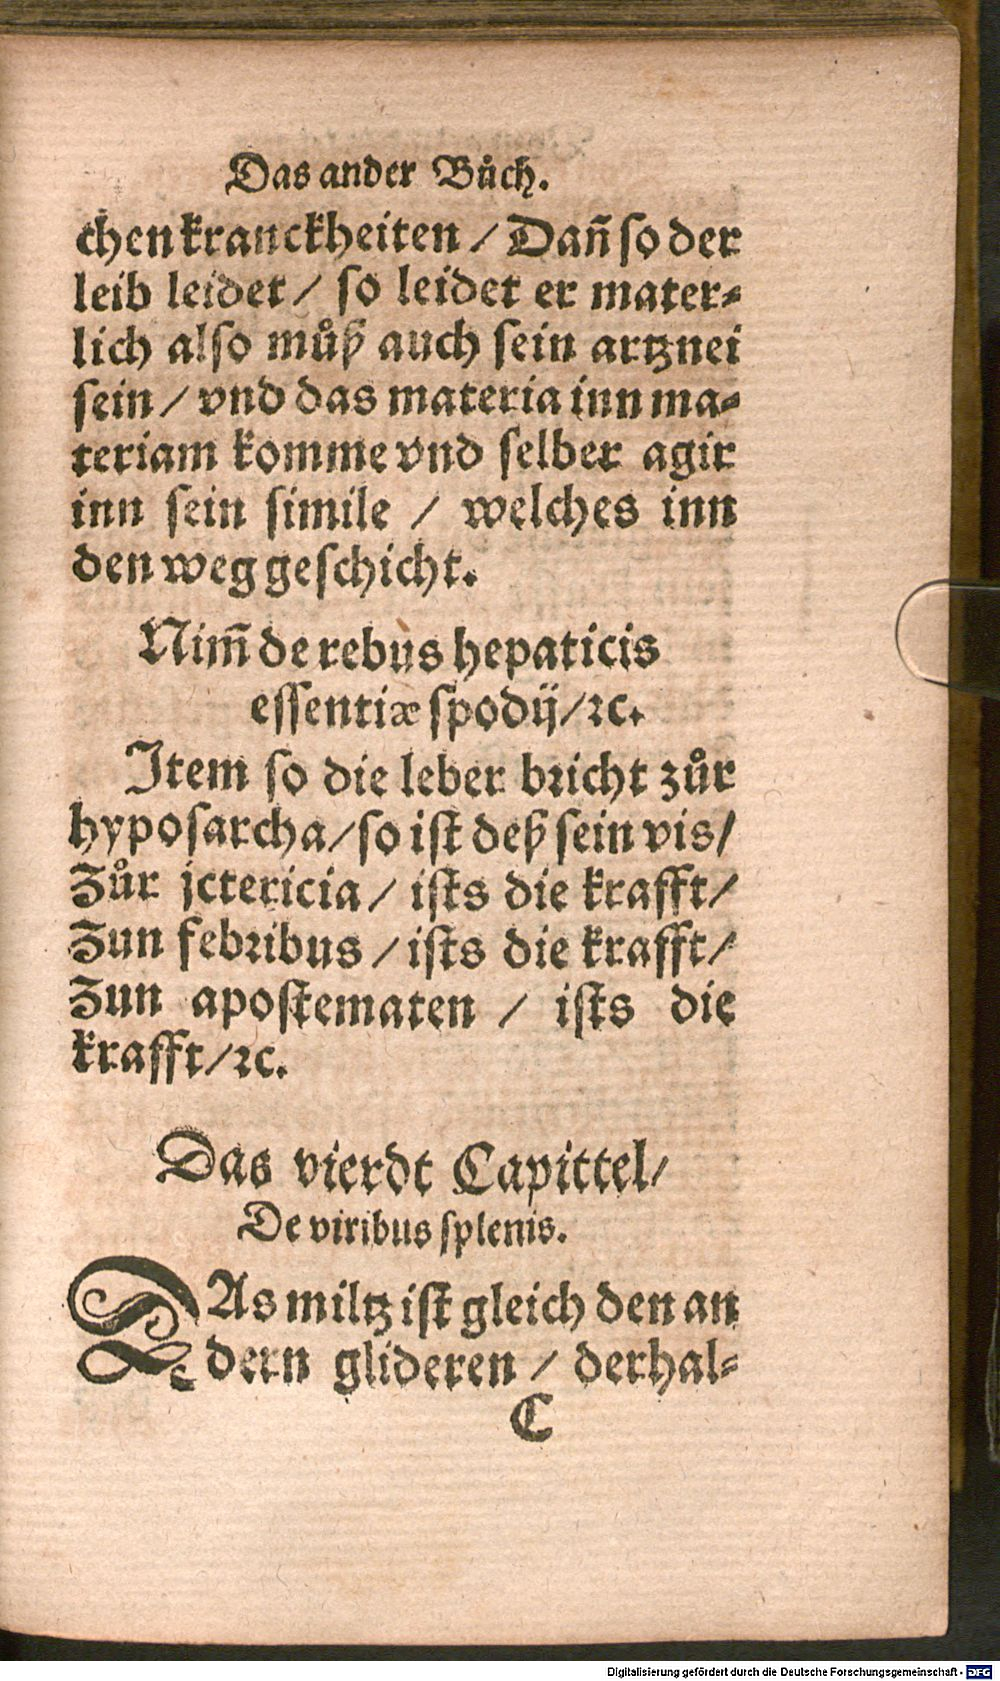 Das ander Bůch.
chen kranckheiten / Dañ so der
leib leidet / so leidet er mater-
lich also můß auch sein artznei
sein / vnd das materia inn ma-
teriam komme vnd selber agir
inn sein simile / welches inn
den weg geschicht.
Nim̃ de rebus hepaticis
essentiæ spodij / ꝛc.
Item so die leber bricht zůr
hyposarcha / so ist deß sein vis /
Zůr jctericia / ists die krafft /
Zun febribus / ists die krafft /
Zun apostematen / ists die
krafft / ꝛc.
Das vierdt Capittel /
De viribus splenis.
DAs miltz ist gleich den an
dern glideren / derhal-
C
Digitalisierung gefördert durch die Deutsche Forschungsgemeinschaft - DFG